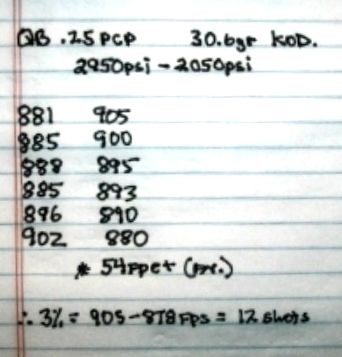 QB .25 PCP 30.6gr KOD.
2950psi - 2050psi
881 905
885 900
888 895
885 893
896 890
902 880
* 54FPE+ (
∴ 3% = 905-878 FPS = 12 shots